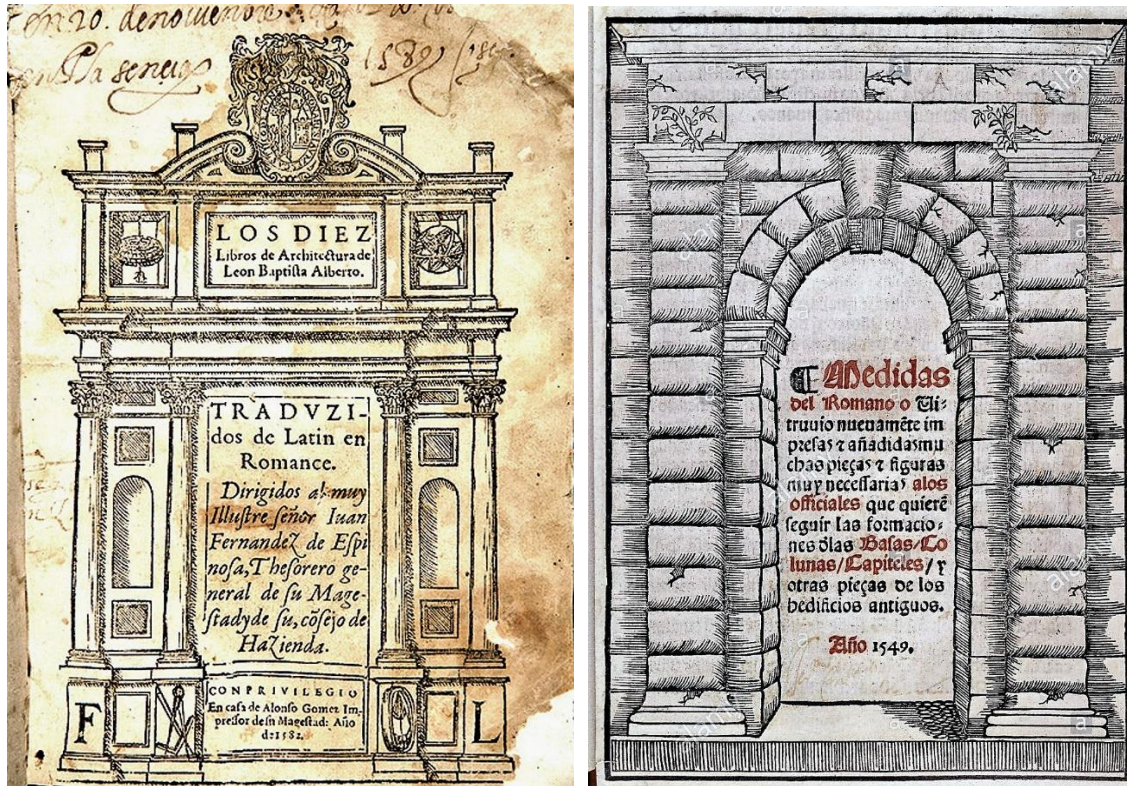 en 20. de nouiembre
1589
LOS DIEZ
Libros de Architectura de
Leon Baptista Alberto.
TRADVZI-
dos de Latin en
Romance.
Dirigidos al muy
Illustre señor Iuan
Fernandez de Espi
nosa, Thesorero ge-
neral de su Mage-
stad y de su, cõsejo de
Hazienda.
CON PRIVILEGIO
En casa de Alonso Gomez Im-
pressor de su Magestad: Año
de 1582.
F L
Medidas
del Romano o Ui-
truuio nueuamẽte im
pressas ⁊ añadidas mu
chas pieças ⁊ figuras
muy necessarias alos
officiales que quierẽ
seguir las formacio-
nes ðlas Basas/Co
lunas/Capiteles/ y
otras pieças de los
hedificios antiguos.
Año 1549.
alamy